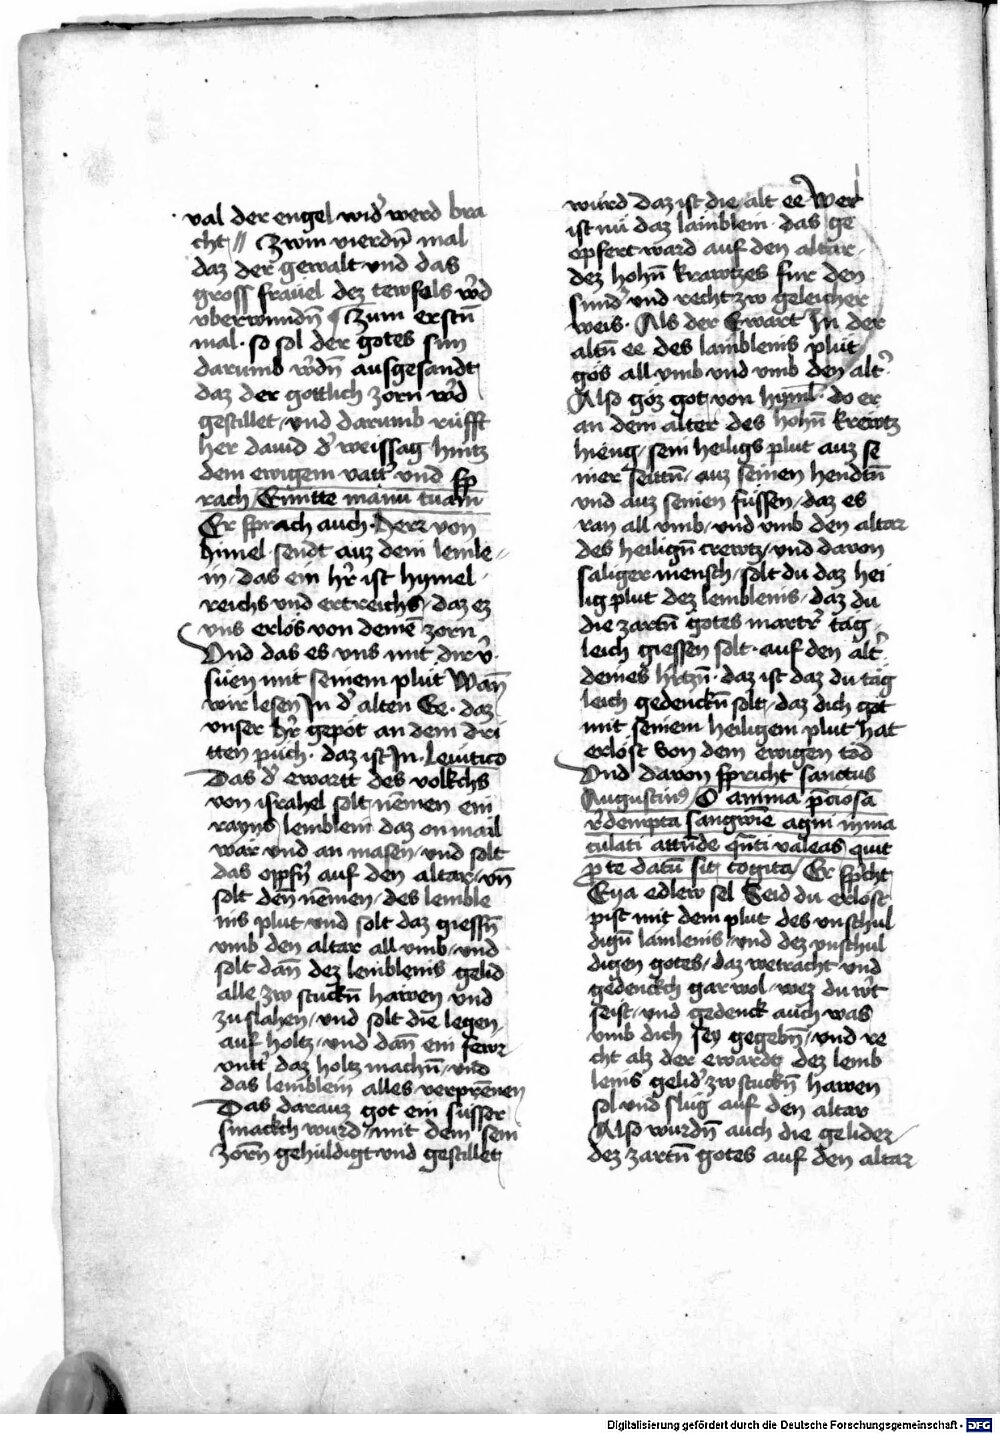 val der engel wid̉ werd bra
cht // Zwm vierdn̄ mal
daz der gewalt vnd das
gross frauel dez tewfels ẘd
vberwundn̄ ¶ Zum erstn̄
mal · so sol der gotes sun
darumb ẘdn̄ ausgesandt
daz der gottlich zorn ẘd
gestillet / vnd darumb rüfft
her dauid d̉ weissag hintz
dem ewigem vatt̉ vnd sp
rach / Emitte manū tuam
Er sprach auch · Herr von
himel sendt auz dein lemle
in / das ein hr̄ ist hymel
reichs vnd ertreichs / daz ez
vns erlös von deinē zorn
Vnd das es vns mit dir v̉
süen mit seinem plut Wan̄
wir lesen In d̉ alten Ee · daz
vnser hr̄ gepöt an dem dri
tten püch · daz ist In Leuitico
Das d̉ ewartt des volkchs
von israhel solt nēmen ein
rayns lemblein daz on mail
wär vnd an masen / vnd solt
das oppfn̄ auf den altar / vn̄
solt den nēmen / des lemble
nis plut vnd solt daz giessn̄
vmb den altar all vmb / vnd
solt dan̄ dez lemblenis gelid
alle zw stuckn̄ hawen vnd
zu slahen / vnd solt die legen
auf holtz / vnd dan̄ ein fewr
vntt̉ daz holtz machn̄ / vnd
das lemblein alles verprēnen
Das darauz got ein süsser
smackch wurd / mit dem sein
zorn̄ gehuldigt vnd gestillet
würd daz ist die alt ee Wer
ist nū daz lamblein · das ge
opfert ward auf den altar
dez hohn̄ krawtzes fur den
sund̉ vnd recht zw geleicher
weis · Als der Ewart In der
altn̄ ee des lamblenis plüt
gos all vmb vnd vmb den alt̉
Also göz got von hyml̄ · do er
an dem alter des hohn̄ kreitz
hieng / sein heiligs plut auz se
iner seittn̄ / auz seinen hendtn̄
vnd auz seinen füssen / daz es
ran all vmb / vnd vmb den altar
des heilign̄ crewtz / vnd davon
saliger mensch / solt du daz hei
lig plut dez lemblenis / daz du
die zartn̄ gotes martr̉ täg
leich giessen solt · auf den alt̉
deines hrtzn̄ · daz ist daz du täg
leich gedenckn̄ solt / daz dich got
mit seinem heiligem plut hat
erlöst von dem ewigen tod
Vnd davon spricht sanctus
Augustinꝰ / O anima p̄ciosa
r̉dempta sangwīe agni inma
culati attēde qn̄ti valeas quit
p te datū sit / cogita / Er sp̉cht
Eya edlew sel Seid du erlost
pist mit dem plut des vnschul
dign̄ lamlenis / vnd dez vnschul
digen gotes / daz wetracht vnd
gedenckch gar wol / wez du ẘt
seist / vnd gedenck auch was
vmb dich sey gegebn̄ / vnd re
cht alz der ewardt dez lemb
lenis gelid̉ zw stuckn̄ hawen
sol vnd slug auf den altar
Also wurdn̄ auch die gelider
dez zartn̄ gotes auf den altar
Digitalisierung gefördert durch die Deutsche Forschungsgemeinschaft - DFG